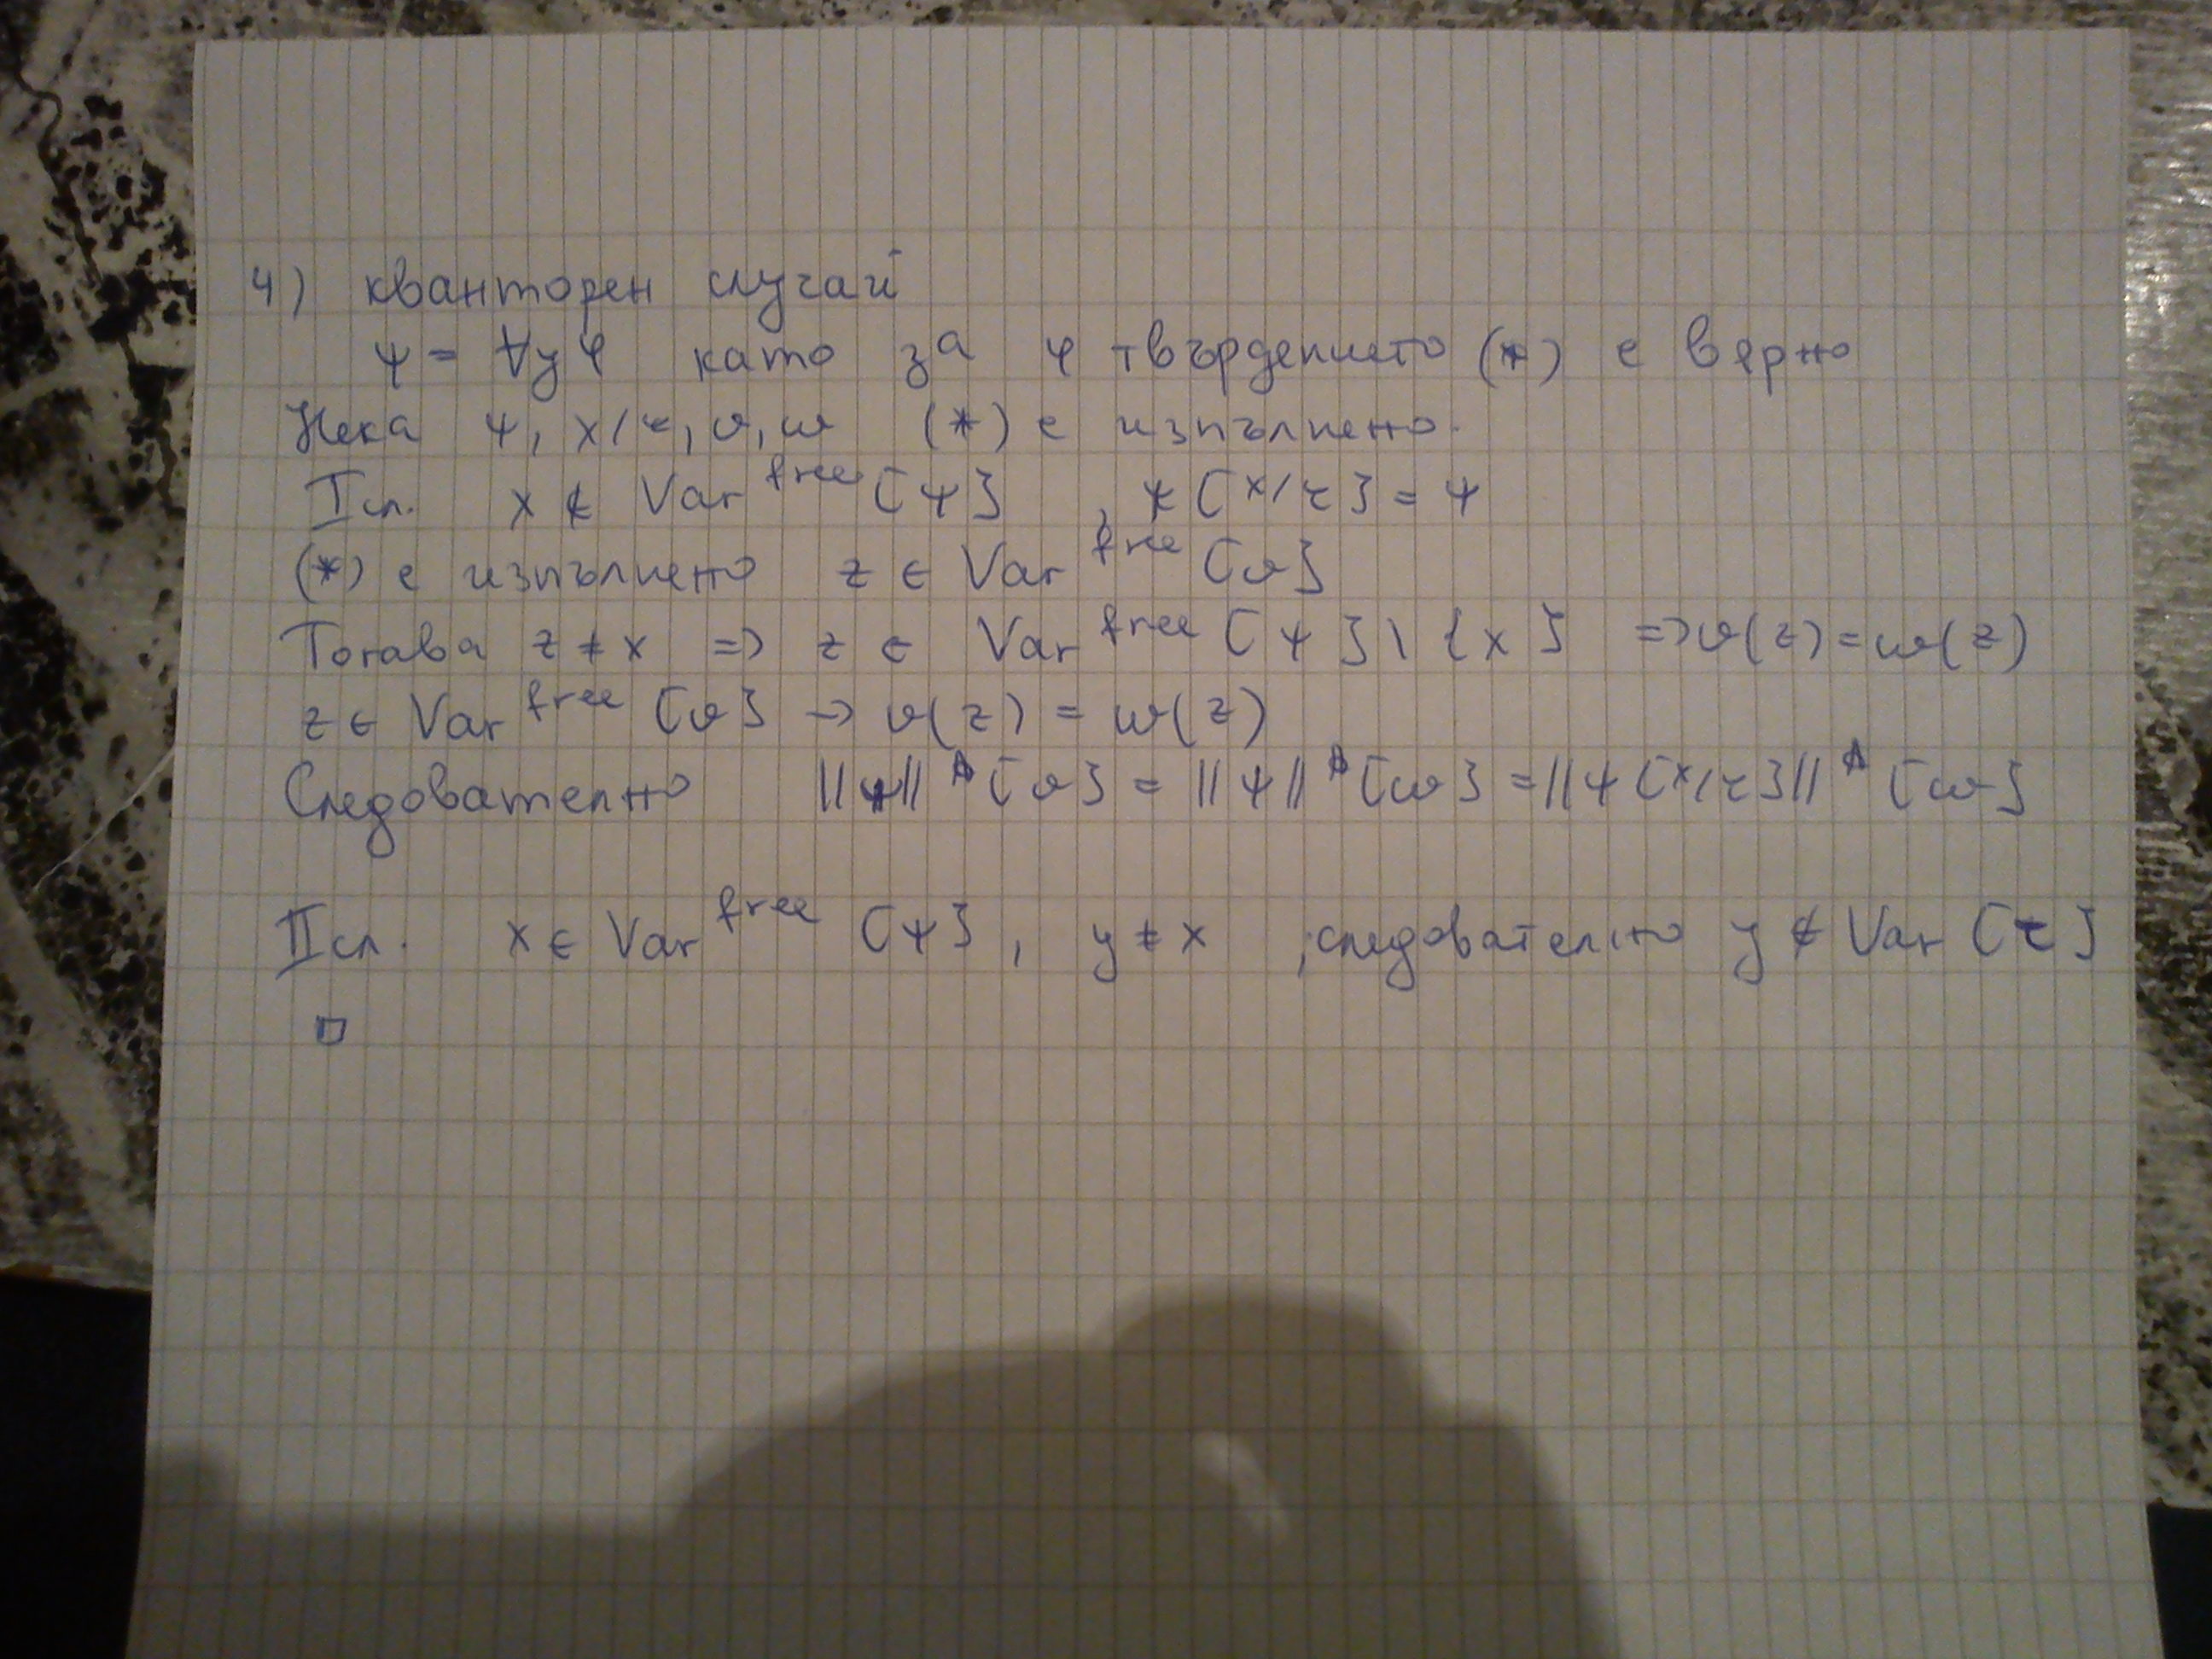 4) кванторен случай
ψ = ∀yφ като за φ твърдението (*) е вярно
Нека ψ, x/τ, v, w (*) е изпълнено.
I сл. x ∉ Var^free [ψ] , ψ[x/τ] = ψ
(*) е изпълнено z ∈ Var^free [v]
Тогава z ≠ x => z ∈ Var^free [ψ] \ {x} => v(z) = w(z)
z ∈ Var^free [v] -> v(z) = w(z)
Следователно ||ψ||^A [v] = ||ψ||^A [w] = ||ψ[x/τ]||^A [w]
II сл. x ∈ Var^free [ψ], y ≠ x ; следователно y ∉ Var [τ]
□